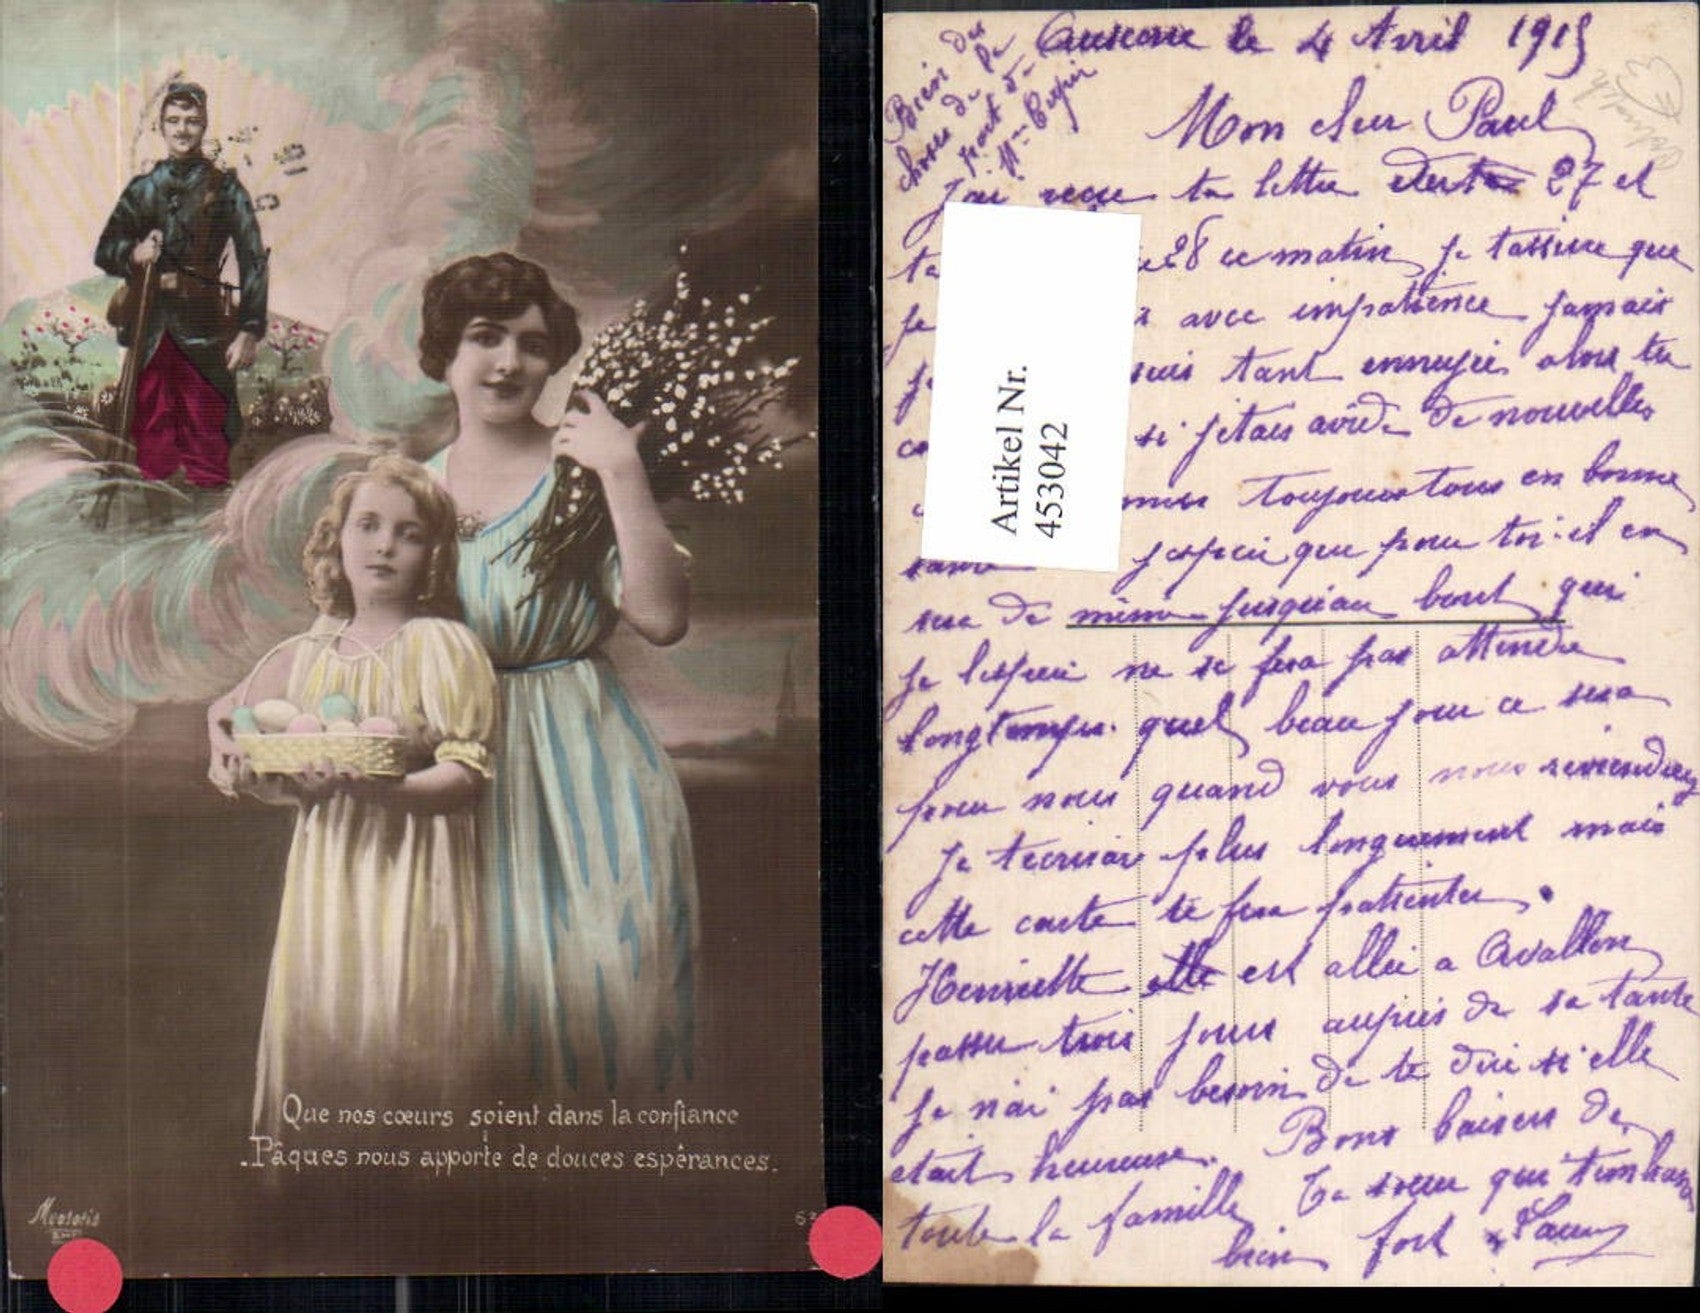 Que nos cœurs soient dans la confiance
Pâques nous apporte de douces espérances.
Artikel Nr.
453042
Bien des
choses de la
part de
le 4 Avril 1915
Mon cher Paul
J'ai reçue ta lettre 27 et
ta 28 ce matin je t'assure que
je avec impatience jamais
je suis tant ennuyée alors tu
si j'etais avide de nouvelles
toujours tous en bonne
santé j'espère que pour toi il en
sera de même jusqu'au bout qui
je l'espère ne se fera pas attendre
longtemps. quel beau jour ce sera
pour nous quand vous nous reviendrez
Je t'ecrirai plus longuement mais
cette carte te fera patienter.
Henriette est allée a Avallon
passer trois jours auprès de sa tante
je n'ai pas besoin de te dire si elle
etait heureuse. Bons baisers de
toute la famille Ta sœur qui t'embrasse
bien fort